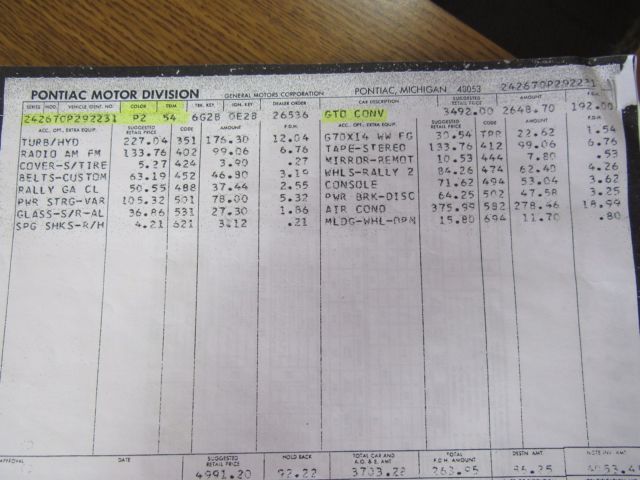 PONTIAC MOTOR DIVISION GENERAL MOTORS CORPORATION PONTIAC, MICHIGAN 48053 242670P292231
SERIES MOD. VEHICLE IDENT. NO. COLOR TRIM TRK. KEY IGN. KEY DEALER ORDER CAR DESCRIPTION SUGGESTED RETAIL PRICE CODE AMOUNT
242670P292231 P2 54 6G28 0E28 26536 GTO CONV 3492.00 2648.70 192.00
ACC. OPT. EXTRA EQUIP. SUGGESTED RETAIL PRICE CODE AMOUNT F.O.H. ACC. OPT. EXTRA EQUIP. SUGGESTED RETAIL PRICE CODE AMOUNT F.O.H.
TURB/HYD 227.04 351 176.30 12.04 G70X14 WW FG 30.54 TPR 22.62 1.54
RADIO AM FM 133.76 402 99.06 6.76 TAPE-STEREO 133.76 412 99.06 6.76
COVER-S/TIRE 5.27 424 3.90 .27 MIRROR-REMOT 10.53 444 7.80 .53
BELTS-CUSTOM 63.19 452 46.80 3.19 WHLS-RALLY 2 84.26 474 62.40 4.26
RALLY GA CL 50.55 488 37.44 2.55 CONSOLE 71.62 494 53.04 3.62
PWR STRG-VAR 105.32 501 78.00 5.32 PWR BRK-DISC 64.25 502 47.58 3.25
GLASS-S/R-AL 36.86 531 27.30 1.86 AIR COND 375.99 582 278.46 18.99
SPG SHKS-R/H 4.21 621 3.12 .21 MLDG-WHL-OPN 15.80 694 11.70 .80
APPROVAL DATE SUGGESTED RETAIL PRICE HOLD BACK TOTAL CAR AND A.O. & E. AMT TOTAL F.O.H. AMOUNT DESTN AMT NOTE INV. AMT
4991.20 92.22 3703.28 263.95